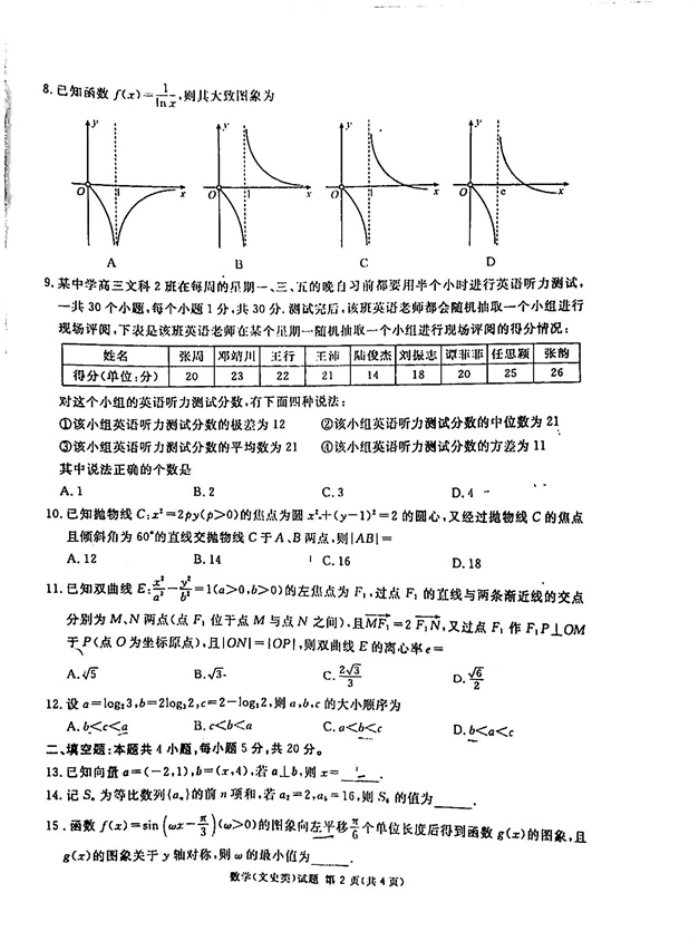 8. 已知函数 f(x)=1/ln x,则其大致图象为
y y y y
O 1 x O 1 x O 1 x O e x
A B C D
9. 某中学高三文科 2 班在每周的星期一、三、五的晚自习前都要用半个小时进行英语听力测试,
一共 30 个小题,每个小题 1 分,共 30 分. 测试完后,该班英语老师都会随机抽取一个小组进行
现场评阅,下表是该班英语老师在某个星期一随机抽取一个小组进行现场评阅的得分情况:
姓名 张周 邓靖川 王行 王沛 陆俊杰 刘振志 谭菲菲 任思颖 张韵
得分(单位:分) 20 23 22 21 14 18 20 25 26
对这个小组的英语听力测试分数,有下面四种说法:
①该小组英语听力测试分数的极差为 12 ②该小组英语听力测试分数的中位数为 21
③该小组英语听力测试分数的平均数为 21 ④该小组英语听力测试分数的方差为 11
其中说法正确的个数是
A. 1 B. 2 C. 3 D. 4
10. 已知抛物线 C:x²=2py(p>0)的焦点为圆 x²+(y-1)²=2 的圆心,又经过抛物线 C 的焦点
且倾斜角为 60°的直线交抛物线 C 于 A、B 两点,则|AB|=
A. 12 B. 14 C. 16 D. 18
11. 已知双曲线 E:x²/a²-y²/b²=1(a>0,b>0)的左焦点为 F₁,过点 F₁ 的直线与两条渐近线的交点
分别为 M、N 两点(点 F₁ 位于点 M 与点 N 之间),且MF₁=2 F₁N,又过点 F₁ 作 F₁P⊥OM
于 P(点 O 为坐标原点),且|ON|=|OP|,则双曲线 E 的离心率 e=
A. √5 B. √3 C. 2√3/3 D. √6/2
12. 设 a=log₂3,b=2log₃2,c=2-log₃2,则 a,b,c 的大小顺序为
A. b<c<a B. c<b<a C. a<b<c D. b<a<c
二、填空题:本题共 4 小题,每小题 5 分,共 20 分。
13. 已知向量 a=(-2,1),b=(x,4),若 a⊥b,则 x=____.
14. 记 Sₙ 为等比数列{aₙ}的前 n 项和,若 a₂=2,a₅=16,则 S₆ 的值为____.
15. 函数 f(x)=sin(ωx-π/3)(ω>0)的图象向左平移π/6个单位长度后得到函数 g(x)的图象,且
g(x)的图象关于 y 轴对称,则 ω 的最小值为____.
数学(文史类)试题 第 2 页(共 4 页)